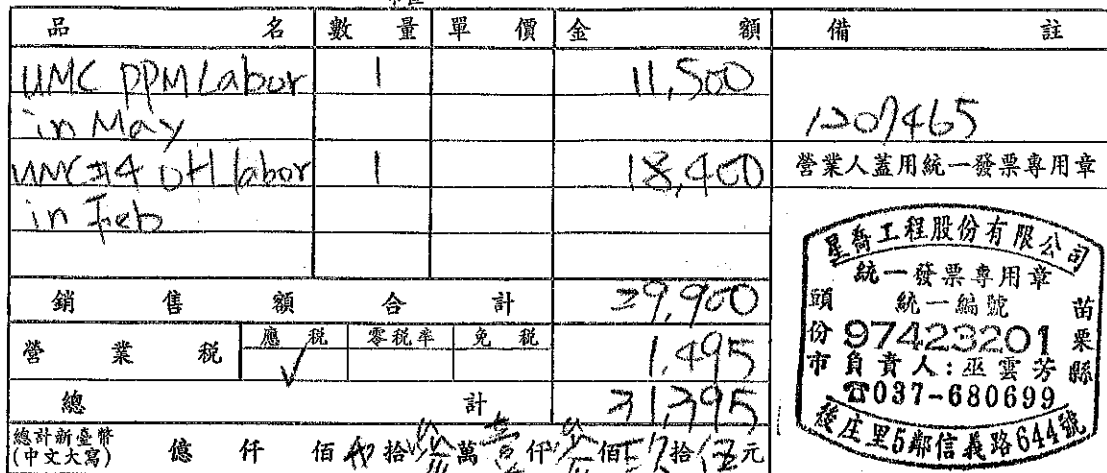 品名 數量 單價 金額 備註
UMC PPM Labor 1 11,500
in May
1207465
UMC#4 OH labor 1 18,400
in Feb
營業人蓋用統一發票專用章
銷售額合計 29,900
營業稅 應稅 零稅率 免稅
✓ 1,495
總計 31,395
總計新臺幣
(中文大寫) 億 仟 佰 拾 萬 仟 佰 拾 元
星喬工程股份有限公司
統一發票專用章
統一編號
97423201
負責人:巫雲芳
☎037-680699
苗栗縣
頭份市
後庄里5鄰信義路644號